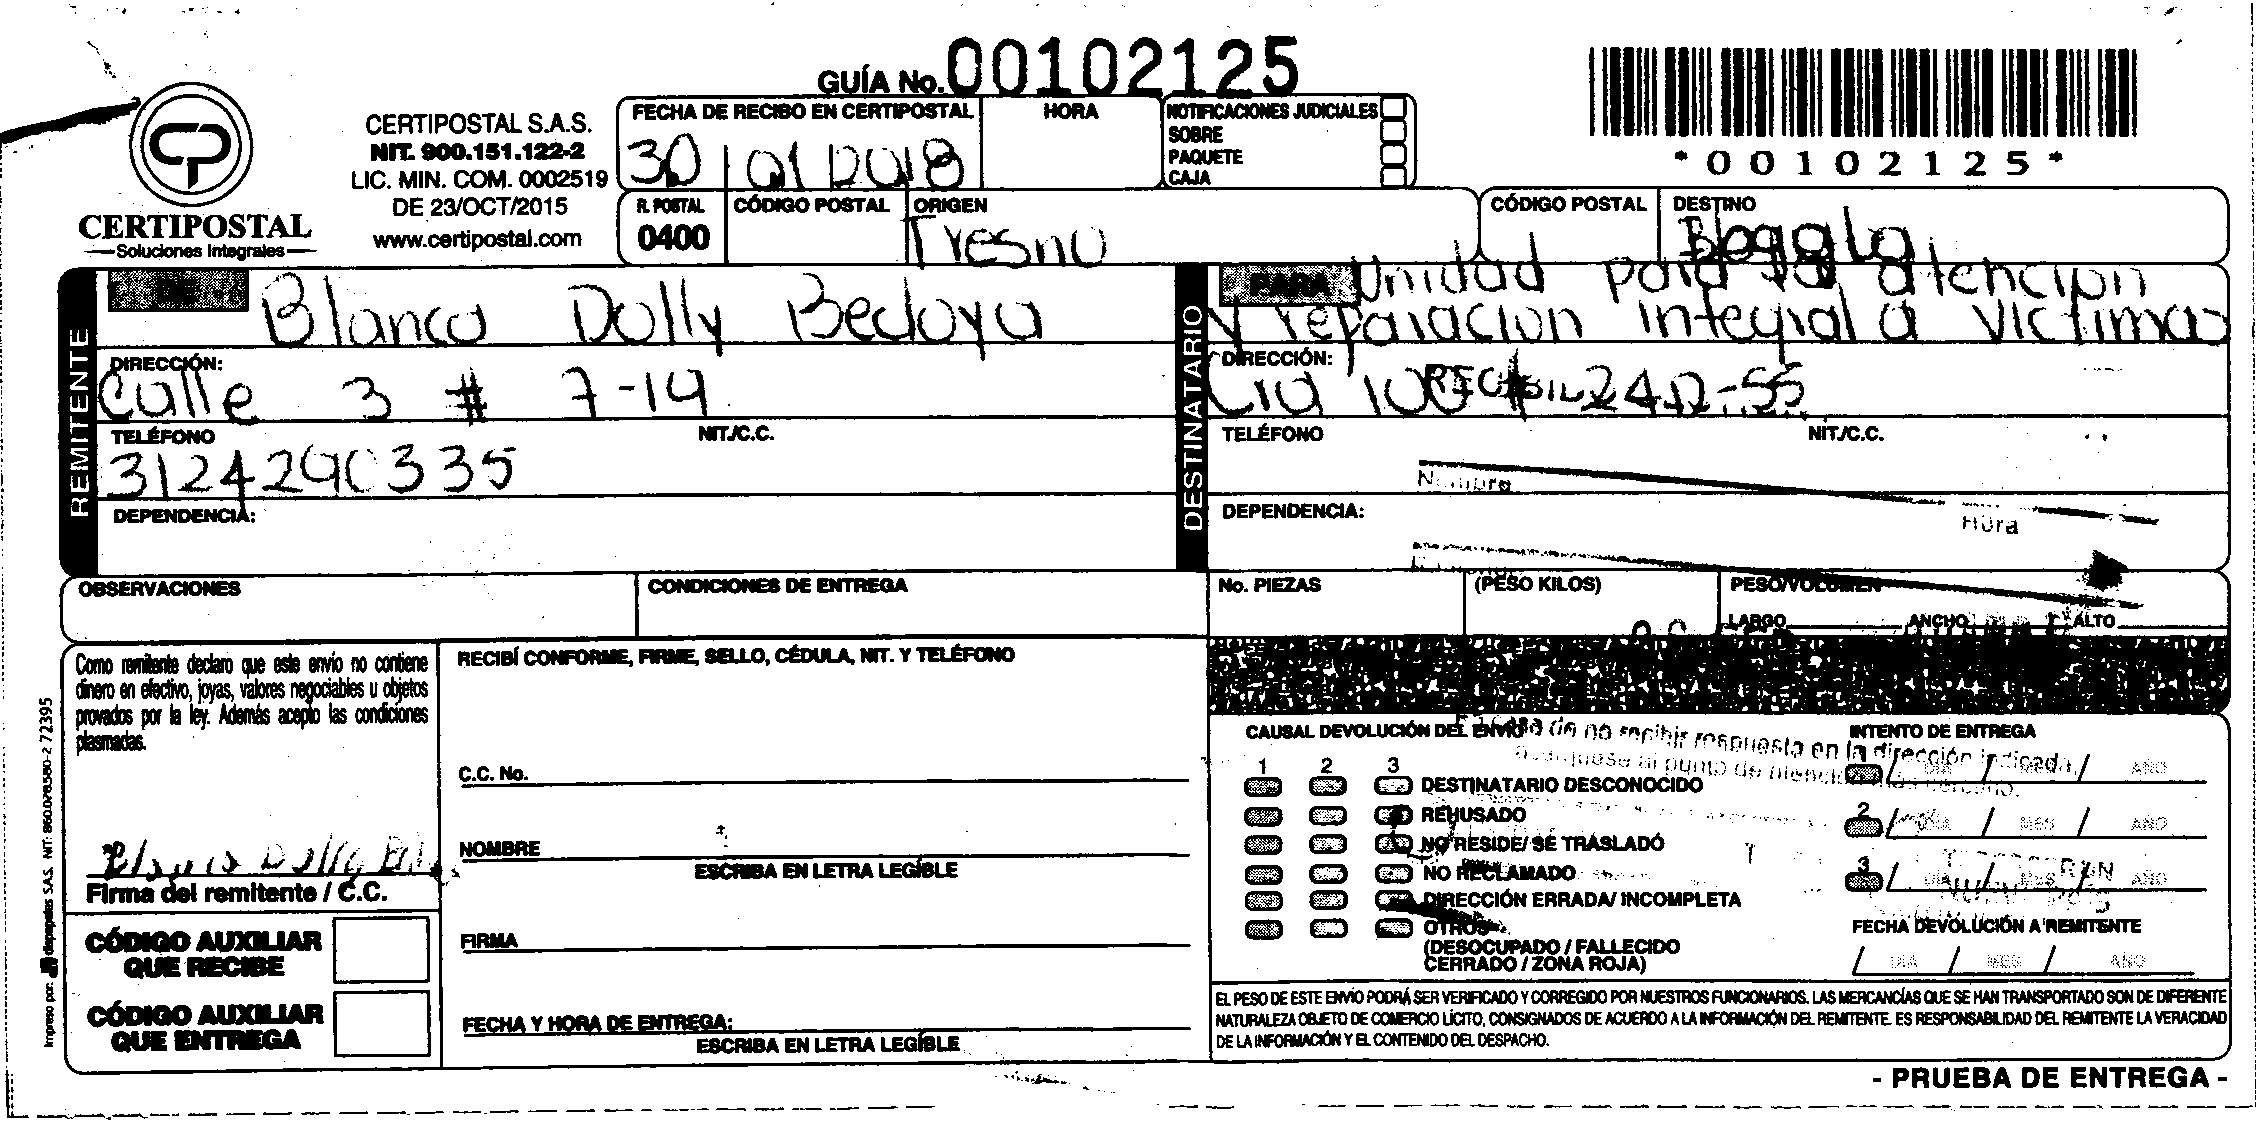 GUÍA No. 00102125
*00102125*
CERTIPOSTAL
Soluciones Integrales
CERTIPOSTAL S.A.S.
NIT. 900.151.122-2
LIC. MIN. COM. 0002519
DE 23/OCT/2015
www.certipostal.com
FECHA DE RECIBO EN CERTIPOSTAL
30 01 2018
HORA
NOTIFICACIONES JUDICIALES
SOBRE
PAQUETE
CAJA
R. POSTAL
0400
CÓDIGO POSTAL
ORIGEN
Fresno
CÓDIGO POSTAL
DESTINO
Bogota
REMITENTE
DE
Blanca Dolly Bedoya
DIRECCIÓN:
Calle 3 # 7-14
TELÉFONO
3124290335
NIT./C.C.
DEPENDENCIA:
DESTINATARIO
PARA
Unidad para la atencion
y reparacion integral a victimas
DIRECCIÓN:
Cra 100 # 24D-55
TELÉFONO
NIT./C.C.
Nombre
DEPENDENCIA:
Hora
OBSERVACIONES
CONDICIONES DE ENTREGA
No. PIEZAS
(PESO KILOS)
PESO/VOLUMEN
LARGO ANCHO ALTO
Como remitente declaro que este envío no contiene
dinero en efectivo, joyas, valores negociables u objetos
provados por la ley. Además acepto las condiciones
plasmadas.
Blanca Dolly
Firma del remitente / C.C.
CÓDIGO AUXILIAR
QUE RECIBE
CÓDIGO AUXILIAR
QUE ENTREGA
RECIBÍ CONFORME, FIRME, SELLO, CÉDULA, NIT. Y TELÉFONO
C.C. No.
NOMBRE
ESCRIBA EN LETRA LEGÍBLE
FIRMA
FECHA Y HORA DE ENTREGA:
ESCRIBA EN LETRA LEGÍBLE
CAUSAL DEVOLUCIÓN DEL ENVÍO
de no recibir respuesta en la dirección indicada,
al punto de
1 2 3
DESTINATARIO DESCONOCIDO
REHUSADO
NO RESIDE/ SE TRASLADÓ
NO RECLAMADO
DIRECCIÓN ERRADA/ INCOMPLETA
OTROS
(DESOCUPADO / FALLECIDO
CERRADO / ZONA ROJA)
INTENTO DE ENTREGA
/ DIA / MES / AÑO
2 / DIA / MES / AÑO
3 / DIA / MES / AÑO
FECHA DEVOLUCIÓN A REMITENTE
/ DIA / MES / AÑO
EL PESO DE ESTE ENVÍO PODRÁ SER VERIFICADO Y CORREGIDO POR NUESTROS FUNCIONARIOS. LAS MERCANCÍAS QUE SE HAN TRANSPORTADO SON DE DIFERENTE
NATURALEZA OBJETO DE COMERCIO LÍCITO, CONSIGNADOS DE ACUERDO A LA INFORMACIÓN DEL REMITENTE. ES RESPONSABILIDAD DEL REMITENTE LA VERACIDAD
DE LA INFORMACIÓN Y EL CONTENIDO DEL DESPACHO.
- PRUEBA DE ENTREGA -
Impreso por: dispapeles S.A.S. NIT: 860.028.580-2 72395